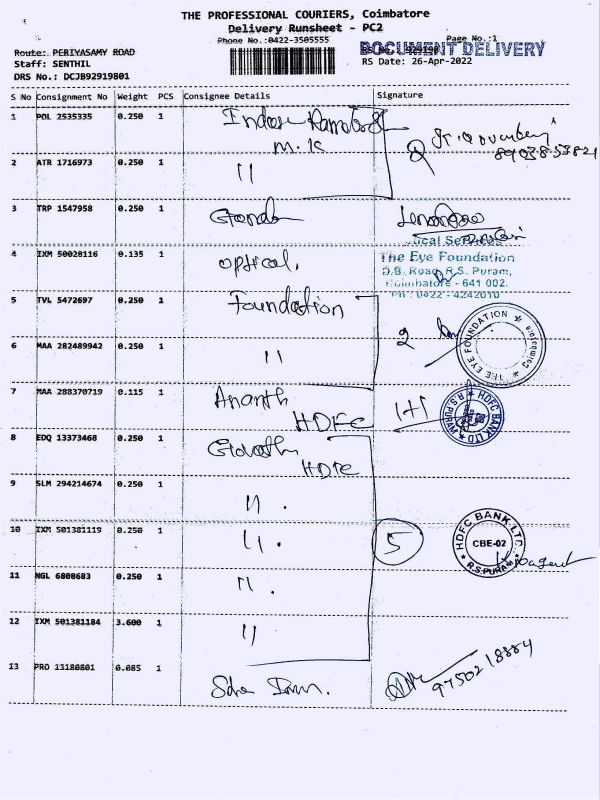 THE PROFESSIONAL COURIERS, Coimbatore
Delivery Runsheet - PC2
Phone No.:0422-3505555
Page No.:1
DOCUMENT DELIVERY
Route: PERIYASAMY ROAD
Staff: SENTHIL
RS Date: 26-Apr-2022
DRS No.: DCJB92919801
S No Consignment No Weight PCS Consignee Details Signature
1 POL 2535335 0.250 1
M.K
8903853821
2 ATR 1716973 0.250 1 "
3 TRP 1547958 0.250 1
Optical Services
The Eye Foundation
D.B. Road, R.S. Puram,
Coimbatore - 641 002.
Ph : 0422 - 4242010
4 IXM 50028116 0.135 1 optical.
5 TVL 5472697 0.250 1 Foundation
2
THE EYE FOUNDATION
Coimbatore
6 MAA 282489942 0.250 1 "
7 MAA 288370719 0.115 1 Ananth
HDFC
1+1
HDFC BANK LTD
R.S PURAM
8 EDQ 13373468 0.250 1
HDFC
9 SLM 294214674 0.250 1 ".
10 IXM 501381119 0.250 1 ".
5
HDFC BANK LTD.
CBE-02
R.S.PURAM
11 NGL 6808683 0.250 1 ".
12 IXM 501381184 3.600 1 "
13 PRO 13180801 0.085 1
9750218884